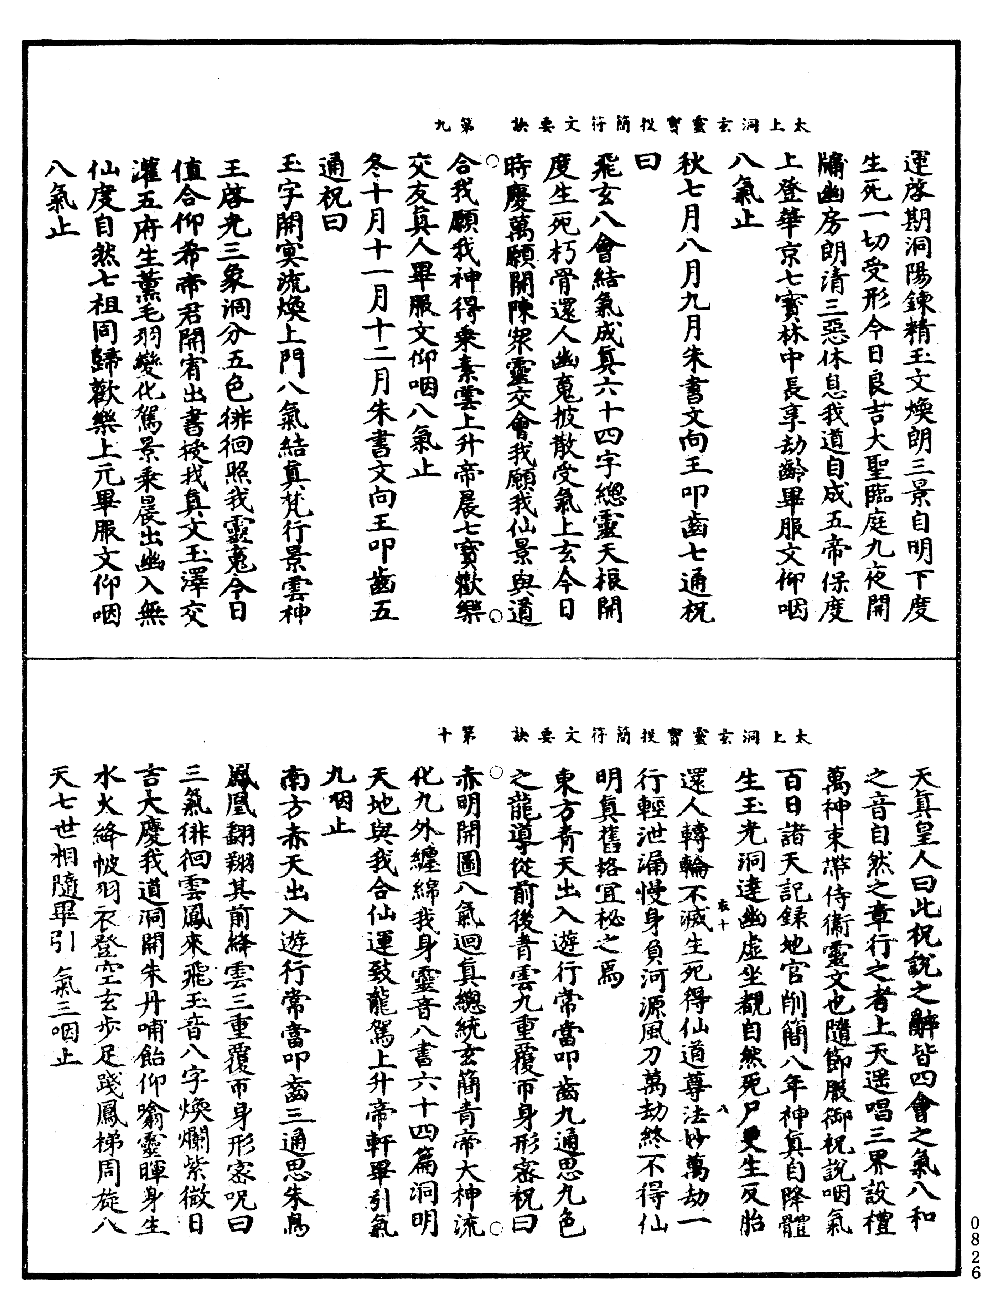 太上洞玄靈寳投簡符文要訣　第九
運啓期洞陽鍊精玉文煥朗三景自明下度
生死一切受形今日良吉大聖臨庭九夜開
牗幽房朗清三惡休息我道自成五帝保度
上登華京七寳林中長享劫齡畢服文仰咽
八氣止
秋七月八月九月朱書文向王叩齒七通祝
曰
飛玄八會結氣成真六十四字緫靈天根開
度生死朽骨還人幽䰟披散受氣上玄今日
時慶萬願開陳衆靈交會我願我仙景與道
合我願我神得乗素雲上升帝晨七寳歡樂
交友真人畢服文仰咽八氣止
冬十月十一月十二月朱書文向王叩齒五
通祝曰
玉字開㝠流煥上門八氣結真梵行景雲神
王啓光三象洞分五色徘徊照我靈䰟今日
值合仰希帝君開宥出書授我真文玉澤交
灌五府生薰毛羽變化駕景乗晨出幽入無
仙度自然七祖同歸歡樂上元畢服文仰咽
八氣止
太上洞玄靈寳投簡符文要訣　第十
天真皇人曰此祝說之辭皆四會之氣八和
之音自然之章行之者上天遥唱三界設禮
萬神束帶侍衛靈文也隨節服御祝說咽氣
百日諸天記録地官削簡八年神真自降體
生玉光洞達幽虚坐觀自然死尸更生反胎
還人轉輪不滅生死得仙道尊法妙萬劫一
行輕泄漏慢身負河源風刀萬劫終不得仙
明真舊格宜秘之焉
東方青天出入遊行常當叩齒九通思九色
之龍導從前後青雲九重覆帀身形密祝曰
赤明開圖八氣迴真緫統玄簡青帝大神流
化九外纏綿我身靈音八書六十四篇洞明
天地與我合仙運致龍駕上升帝軒畢引氣
九咽止
南方赤天出入遊行常當叩齒三通思朱鳥
鳳凰翻翔其前絳雲三重覆帀身形密呪曰
三氣徘徊雲鳳來飛玉音八字煥爛紫微日
吉大慶我道洞開朱丹哺飴仰噏靈暉身生
水火絳帔羽衣登空玄步足踐鳳梯周旋八
天七世相隨畢引氣三咽止
0826